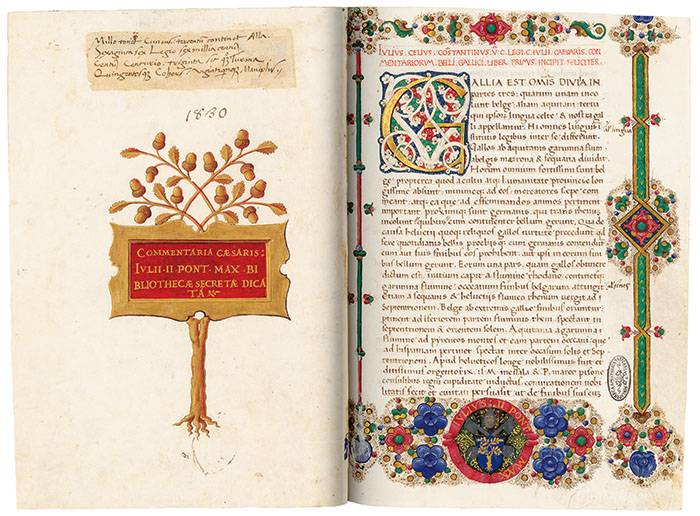 Mille Cuneus continet Alla
Legio
Cohors
1830
COMMENTARIA CÆSARIS:
IVLII·II·PONT·MAX·BI
BLIOTHECÆ SECRETÆ DICA
TA
IVLIVS·CELIVS·COSTANTINVS·V·C·LEGI·C·IVLII CAESARIS·COM
MENTARIORVM·BELLI GALLICI·LIBER·PRIMVS·INCIPIT·FELICITER·
GALLIA EST OMIS DIVISA IN
partes tres: quarum unam inco
lunt belgę aliam aquitani tertiā
qui ipsorū lingua celtę & nostra gal
li appellantur. Hi omnes lingua isti
tutis legibus inter se differunt.
Gallos ab Aquitanis garumna flum
belgis matrona & sequana diuidit.
Horum omnium fortissimi sunt bel
gę: propterea quod a cultu atq; humanitate prouincię lon
gissime absunt: minimeq; ad eos mercatores sępe com
meant: atq; ea quę ad effeminandos animos pertinent
important: proximiq; sunt germanis: qui trans rhenum
incolunt: quibuscum continenter bellum gerunt. Qua de
causa heluetii quoq; reliquos gallos uirtute pręcedunt: quod
fere quotidianis belli pręliis cum germanis contendunt
cum aut suis finibus eos prohibent: aut ipsi in eorum fini
bus bellum gerunt. Eorum una pars quam gallos obtinere
dictum est: initium capit a flumine rhodano: continetur
garumna flumine: occeano finibus belgarum: attingit
etiam a sequanis & heluetiis flumen rhenum: uergit ad
septentriones. Belgę ab extremis gallię finibus oriuntur:
pertinent ad inferiorem partem fluminis rheni: spectant in
septentrionem & orientem solem. Aquitania a garumna
flumine ad pyreneos montes & eam partem occeani: quę
ad hispaniam pertinet: spectat inter occasum solis et sep
tentrionem. Apud heluetios longe nobilissimus fuit et
ditissimus orgentorix. is M. messala & P. marco pisone
consulibus regni cupiditate inductus coniurationem nobi
litatis fecit et ciuitati persuasit ut de finibus suis cum
lingua
IVLIVS·II·PONT